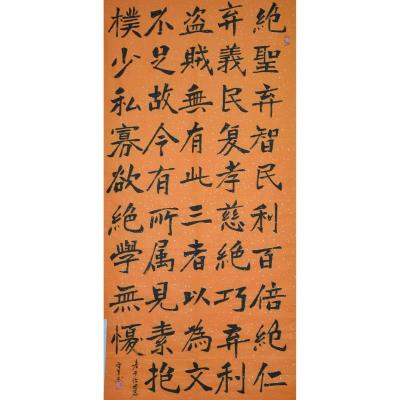 絶聖弃智民利百倍絶仁
弃義民复孝慈絶巧弃利
盗賊無有此三者以為文
不足故今有所属見素抱
樸少私寡欲絶學無憂
老子